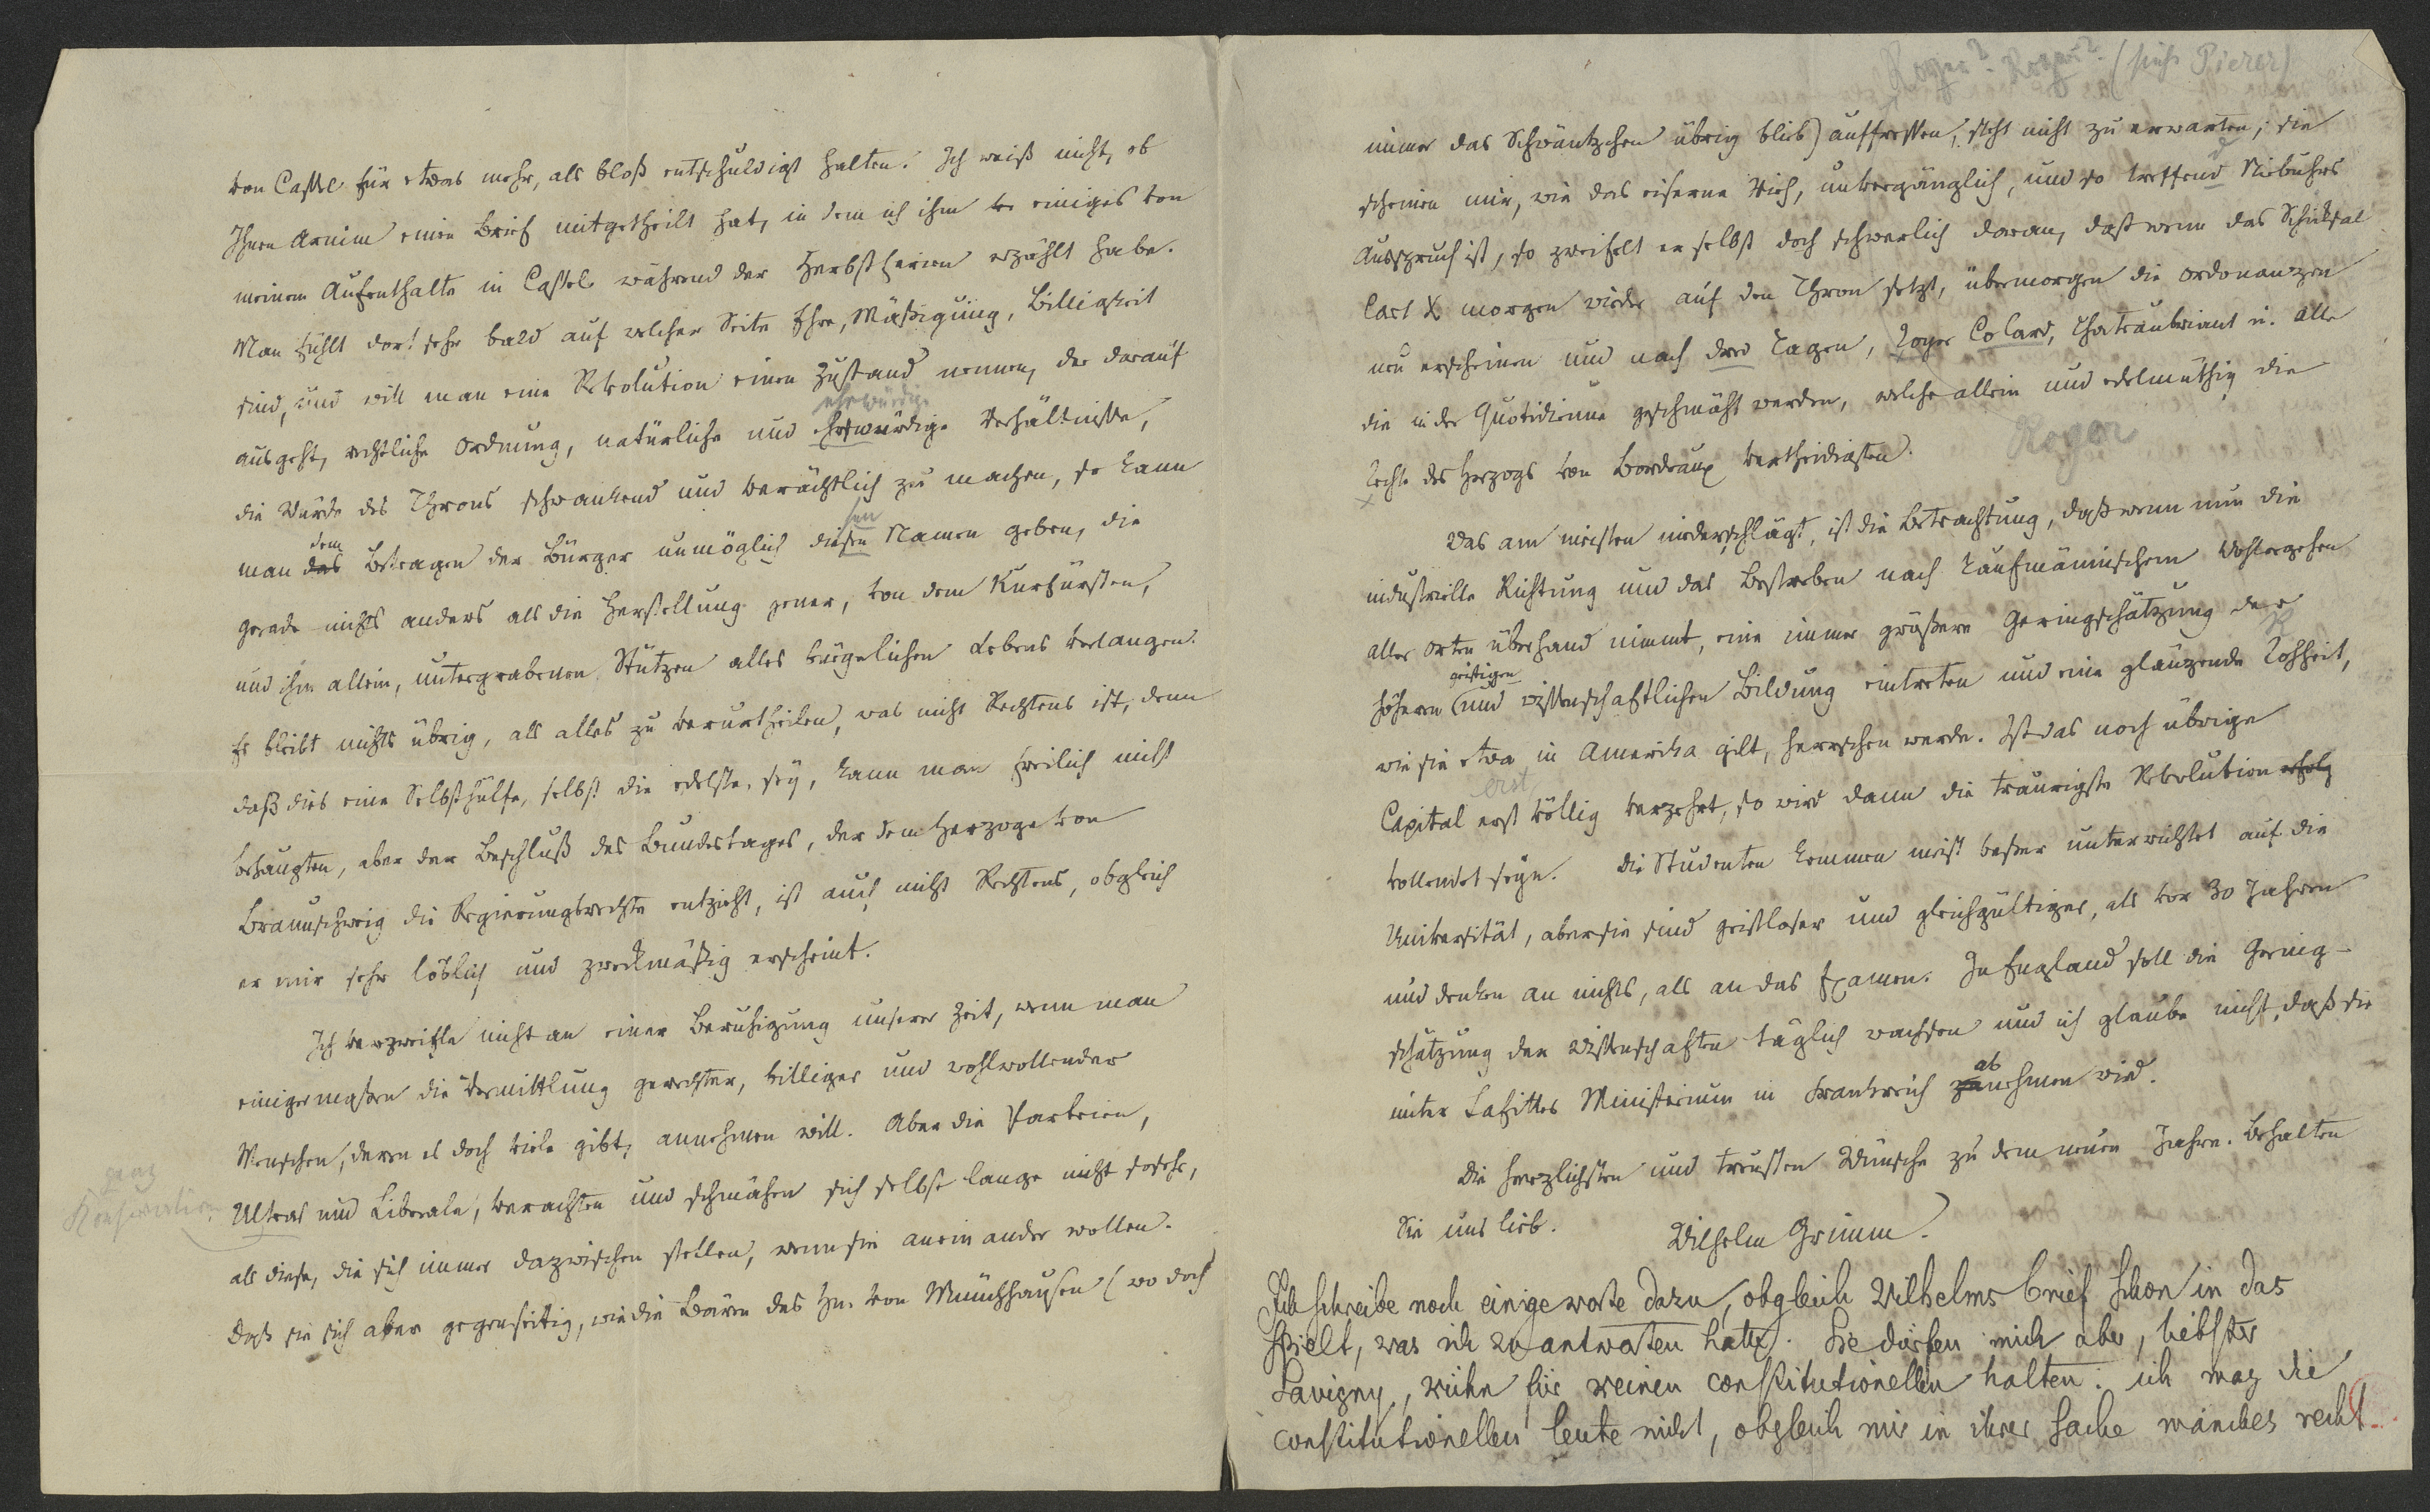 von Cassel für etwas mehr, als bloß entschuldigt halten. Ich weiß nicht, ob
Ihnen Arnim einen Brief mitgetheilt hat, in dem ich ihm einiges von
meinem Aufenthalte in Cassel während der Herbstferien erzählt habe.
Man fühlt dort sehr bald auf welcher Seite Ehre, Mäßigung, Billigkeit
sind, und will man eine Revolution einen Zustand nennen, der darauf
ehrwürdige
ausgeht, rechtliche Ordnung, natürliche und ehrwürdige Verhältnisse,
die Würde des Throns schwankend und verächtlich zu machen, so kann
dem
sen
man das Betragen der Bürger unmöglich diesen Namen geben, die
gerade nichts anders als die Herstellung jener, von dem Kurfürsten,
und ihm allein, untergrabenen Stützen alles bürgerlichen Lebens verlangen.
Es bleibt nichts übrig, als alles zu verurtheilen, was nicht Rechtens ist, denn
daß dies eine Selbsthülfe, selbst die edelste, sey, kann man freilich nicht
behaupten, aber der Beschluß des Bundestages, der dem Herzoge von
Braunschweig die Regierungsrechte entzieht, ist auch nicht Rechtens, obgleich
er mir sehr löblich und zweckmäßig erscheint.
Ich verzweifle nicht an einer Beruhigung unserer Zeit, wenn man
einigermaßen die Vermittlung gerechter, billiger und wohlwollender
Menschen, deren es doch viele gibt, annehmen will. Aber die Parteien,
ganz
Ultras und Liberale, verachten und schmähen sich selbst lange nicht so sehr,
als diese, die sich immer dazwischen stellen, wenn sie an einander wollen.
Daß sie sich aber gegenseitig, wie die Bären des Hn. von Münchhausen (wo doch
Royer? Roger? (siehe Pierer)
immer das Schwäntzchen übrig blieb) auffressen, steht nicht zu erwarten; sie
scheinen mir, wie das eiserne Vieh, unvergänglich, und so treffend Niebuhrs
Ausspruch ist, so zweifelt er selbst doch schwerlich daran, daß wenn das Schicksal
Carl X morgen wieder auf den Thron setzt, übermorgen die Ordonanzen
neu erscheinen und nach drei Tagen, Royer Colard, Chateaubriant u. alle
die in der Quotidienne geschmäht werden, welche allein und edelmüthig die
Rechte des Herzogs von Bordeaux vertheidigten.
Royer
Was am meisten niederschlägt, ist die Betrachtung, daß wenn nun die
industrielle Richtung und das Bestreben nach kaufmännischem Wohlergehen
aller Orten überhand nimmt, eine immer größere Geringschätzung der
geistigen
höheren und wissenschaftlichen Bildung eintreten und eine glänzende Rohheit,
wie sie etwa in Amerika gilt, herrschen werde. Ist das noch übrige
erst
Capital erst völlig verzehrt, so wird dann die traurigste Revolution erfolg
vollendet seyn. Die Studenten kommen meist besser unterrichtet auf die
Universität, aber sie sind geistloser und gleichgültiger, als vor 30 Jahren
und denken an nichts, als an das Examen. In England soll die Gering-
schätzung der Wissenschaften täglich wachsen und ich glaube nicht, daß sie
ab
unter Lafittes Ministerium in Frankreich zunehmen wird.
Die herzlichsten und treusten Wünsche zu dem neuen Jahre. Behalten
Sie uns lieb.
Wilhelm Grimm.
Ich schreibe noch einige worte dazu, obgleich Wilhelms brief schon in das
spielt, was ich zu antworten hatte. Sie dürfen mich aber, liebster
Savigny, nicht für keinen constitutionellen halten. ich mag die
constitutionellen leute nicht, obgleich mir in ihrer sache manches recht